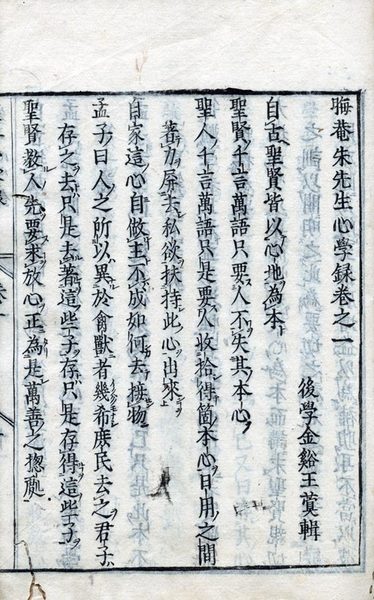 晦菴朱先生心學録卷之一
後學金谿王蓂輯
自古聖賢皆以心地為本
聖賢千言萬語只要人不失其本心
聖人千言萬語只是要人收拾得箇本心日用之間
著力屏去私欲扶持此心出來
自家這心自做主不成如何去接物
孟子曰人之所以異於禽獸者幾希庶民去之君子
存之去只是去著這些子存只是存得這些子
聖賢教人先要求放心正為是萬善之揔